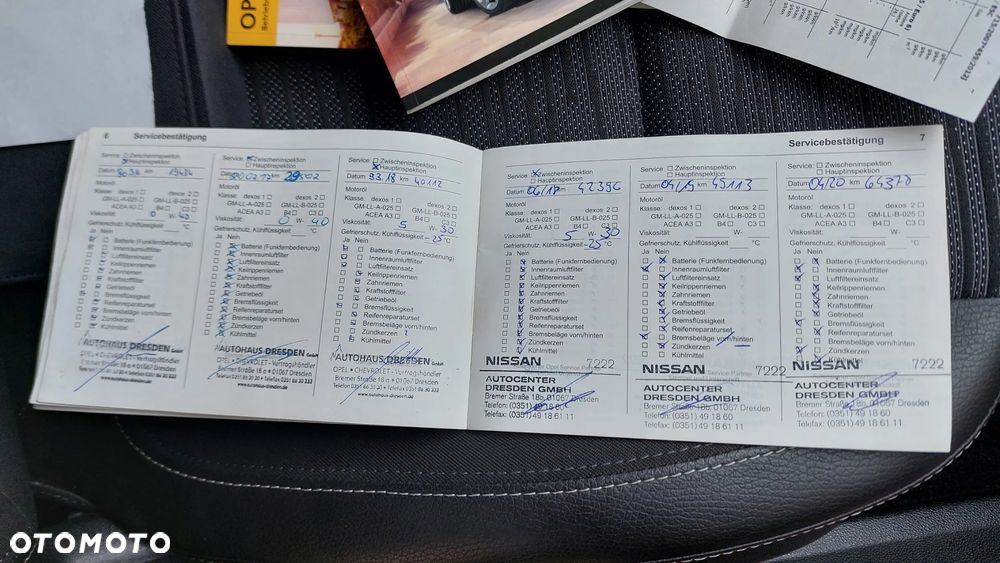 OP
Betrieb
ESC
15 / Euro 6)
6
Servicebestätigung
Service: Zwischeninspektion
Hauptinspektion
Datum km 19434
Motoröl
Klasse: dexos 1 dexos 2
GM-LL-A-025 GM-LL-B-025
ACEA A3 B4 C3
Viskosität: 0 W- 40
Gefrierschutz, Kühlflüssigkeit °C
Ja Nein
Batterie (Funkfernbedienung)
Innenraumluftfilter
Luftfiltereinsatz
Keilrippenriemen
Zahnriemen
Kraftstofffilter
Getriebeöl
Bremsflüssigkeit
Reifenreparaturset
Bremsbeläge vorn/hinten
Zündkerzen
Kühlmittel
AUTOHAUS DRESDEN GmbH
OPEL • CHEVROLET - Vertragshändler
Bremer Straße 18 a • 01067 Dresden
www.autohaus-dresden.de
Service: Zwischeninspektion
Hauptinspektion
Datum km
Motoröl
Klasse: dexos 1 dexos 2
GM-LL-A-025 GM-LL-B-025
ACEA A3 B4 C3
Viskosität: 0 W- 40
Gefrierschutz, Kühlflüssigkeit °C
Ja Nein
Batterie (Funkfernbedienung)
Innenraumluftfilter
Luftfiltereinsatz
Keilrippenriemen
Zahnriemen
Kraftstofffilter
Getriebeöl
Bremsflüssigkeit
Reifenreparaturset
Bremsbeläge vorn/hinten
Zündkerzen
Kühlmittel
AUTOHAUS DRESDEN GmbH
OPEL • CHEVROLET - Vertragshändler
Bremer Straße 18 a • 01067 Dresden
www.autohaus-dresden.de
Service: Zwischeninspektion
Hauptinspektion
Datum 03.18 km 40112
Motoröl
Klasse: dexos 1 dexos 2
GM-LL-A-025 GM-LL-B-025
ACEA A3 B4 C3
Viskosität: 5 W- 30
Gefrierschutz, Kühlflüssigkeit -25 °C
Ja Nein
Batterie (Funkfernbedienung)
Innenraumluftfilter
Luftfiltereinsatz
Keilrippenriemen
Zahnriemen
Kraftstofffilter
Getriebeöl
Bremsflüssigkeit
Reifenreparaturset
Bremsbeläge vorn/hinten
Zündkerzen
Kühlmittel
AUTOHAUS DRESDEN GmbH
OPEL • CHEVROLET - Vertragshändler
Bremer Straße 18 a • 01067 Dresden
www.autohaus-dresden.de
Servicebestätigung
7
Service: Zwischeninspektion
Hauptinspektion
Datum 06/18 km 42396
Motoröl
Klasse: dexos 1 dexos 2
GM-LL-A-025 GM-LL-B-025
ACEA A3 B4 C3
Viskosität: 5 W- 30
Gefrierschutz, Kühlflüssigkeit -25 °C
Ja Nein
Batterie (Funkfernbedienung)
Innenraumluftfilter
Luftfiltereinsatz
Keilrippenriemen
Zahnriemen
Kraftstofffilter
Getriebeöl
Bremsflüssigkeit
Reifenreparaturset
Bremsbeläge vorn/hinten
Zündkerzen
Kühlmittel
NISSAN 7222
AUTOCENTER
DRESDEN GMBH
Bremer Straße 18b, 01067 Dresden
Telefon: (0351) 49 18 60
Telefax: (0351) 49 18 61 11
Service: Zwischeninspektion
Hauptinspektion
Datum 04/19 km 45113
Motoröl
Klasse: dexos 1 dexos 2
GM-LL-A-025 GM-LL-B-025
ACEA A3 B4 C3
Viskosität: W-
Gefrierschutz, Kühlflüssigkeit °C
Ja Nein
Batterie (Funkfernbedienung)
Innenraumluftfilter
Luftfiltereinsatz
Keilrippenriemen
Zahnriemen
Kraftstofffilter
Getriebeöl
Bremsflüssigkeit
Reifenreparaturset
Bremsbeläge vorn/hinten
Zündkerzen
Kühlmittel
NISSAN 7222
AUTOCENTER
DRESDEN GMBH
Bremer Straße 18b, 01067 Dresden
Telefon: (0351) 49 18 60
Telefax: (0351) 49 18 61 11
Service: Zwischeninspektion
Hauptinspektion
Datum 04/20 km 64370
Motoröl
Klasse: dexos 1 dexos 2
GM-LL-A-025 GM-LL-B-025
ACEA A3 B4 C3
Viskosität: W-
Gefrierschutz, Kühlflüssigkeit °C
Ja Nein
Batterie (Funkfernbedienung)
Innenraumluftfilter
Luftfiltereinsatz
Keilrippenriemen
Zahnriemen
Kraftstofffilter
Getriebeöl
Bremsflüssigkeit
Reifenreparaturset
Bremsbeläge vorn/hinten
Zündkerzen
Kühlmittel
NISSAN 7222
AUTOCENTER
DRESDEN GMBH
Bremer Straße 18b, 01067 Dresden
Telefon: (0351) 49 18 60
Telefax: (0351) 49 18 61 11
OTOMOTO